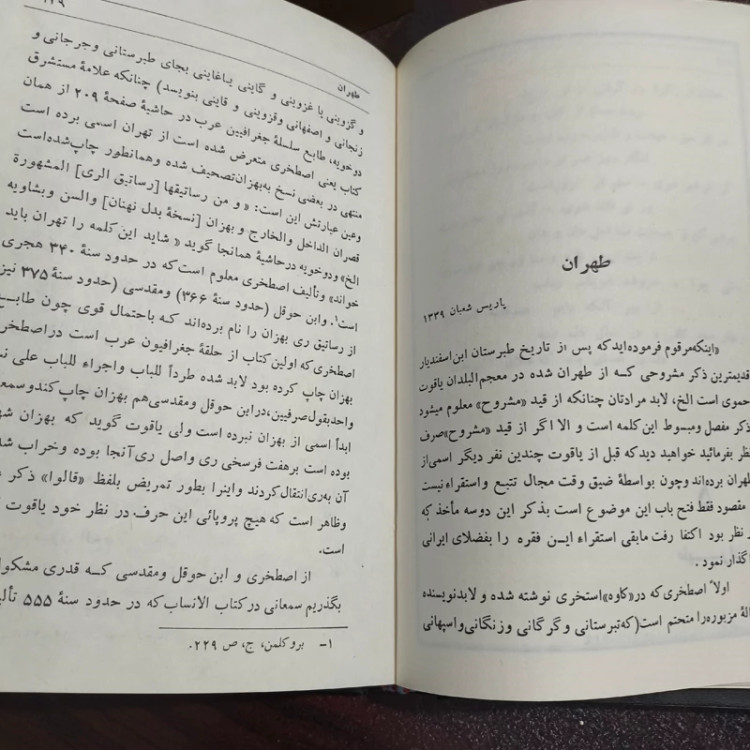 طهران
پاریس شعبان ۱۳۳۹
«اینکه مرقوم فرموده‌اید که پس از تاریخ طبرستان ابن‌اسفندیار
قدیمترین ذکر مشروحی کــه از طهران شده در معجم‌البلدان یاقوت
حموی است الخ، لابد مرادتان چنانکه از قید «مشروح» معلوم میشود
ذکر مفصل ومبسوط این‌کلمه است و الا اگر از قید «مشروح»صرف
نظر بفرمائید خواهید دیدکه قبل از یاقوت چندین نفر دیگر اسمی‌از
طهران برده‌اند وچون بواسطهٔ ضیق وقت مجال تتبع واستقراء نیست
مقصود فقط فتح باب این موضوع است بذکر این دوسه مأخذ که
نظر بود اکتفا رفت مابقی استقراء ایــن فقره را بفضلای ایرانی
گذار نمود.
اولاً اصطخری‌که در«کاوه»استخری نوشته شده و لابدنویسنده
مزبوره‌را متحتم است(که‌تبرستانی وگرگانی وزنگانی‌واسپهانی
طهران
و گزوینی یا غزوینی و گاینی یاغاینی بجای طبرستانی وجرجانی و
زنجانی و اصفهانی وقزوینی و قاینی بنویسد) چنانکه علامهٔ مستشرق
دوخویه، طابع سلسلهٔ جغرافیین عرب در حاشیهٔ صفحهٔ ۲۰۹ از همان
کتاب یعنی اصطخری متعرض شده است از تهران اسمی برده است
منتهی در بعضی نسخ به‌بهزان‌تصحیف شده وهمانطور چاپ‌شده‌است
وعین عبارتش این است: «و من رساتیقها [رساتیق الری] المشهورة
قصران الداخل والخارج و بهزان [نسخهٔ بدل نهنان] والسن وبشاویه
الخ» ودوخویه درحاشیهٔ همانجا گوید « شاید این‌کلمه را تهران باید
خواند» وتألیف اصطخری معلوم است‌که در حدود سنهٔ ۳۴۰ هجری
است۱. وابن حوقل (حدود سنهٔ ۳۶۶) ومقدسی (حدود سنهٔ ۳۷۵ نیز
از رساتیق ری بهزان را نام برده‌اند کــه باحتمال قوی چون طابــع
اصطخری‌که اولین‌کتاب از حلقهٔ جغرافیون عرب است دراصطخر
بهزان چاپ کرده بود لابد شده طرداً للباب واجراء للباب علی
واحدبقول‌صرفیین،دراین حوقل ومقدسی‌هم بهزان چاپ‌کندوسمعا
ابداً اسمی از بهزان نبرده است ولی یاقوت گوید که بهزان
بوده است برهفت فرسخی ری واصل ری‌آنجا بوده وخراب
آن به‌ری‌انتقال‌کردند واینرا بطور تمریض بلفظ «قالوا» ذکر
وظاهر است که هیچ پروپائی این حرف در نظر خود یاقوت
است.
از اصطخری و ابن حوقل ومقدسی کــه قدری مشکو
بگذریم سمعانی درکتاب الانساب‌که در حدود سنهٔ ۵۵۵
۱- بروکلمن، ج، ص ۲۲۹.